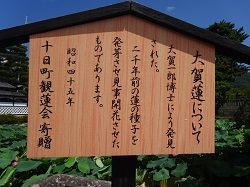 大賀蓮について
大賀一郎博士により発見
された。
二千年前の蓮の種子を
発芽させ見事開花させた
ものであります。
昭和四十五年
十日町観蓮会 寄贈